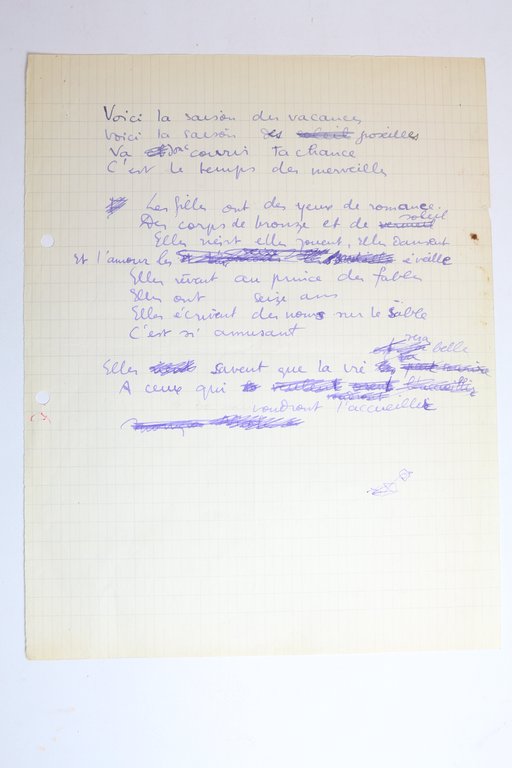 Voici la saison des vacances
Voici la saison des soleil groseilles
Va donc courrir ta chance
C'est le temps des merveilles
Les filles ont des yeux de romance.
soleil
Des corps de bronze et de vermeil
Elles rient elles jouent, elles dansent
Et l'amour les éveille
Elles rêvent au prince des fables
Elles ont seize ans
Elles écrivent des noms sur le sable
C'est si amusant
sera belle
Elles savent que la vie
A ceux qui
voudront l'accueillir